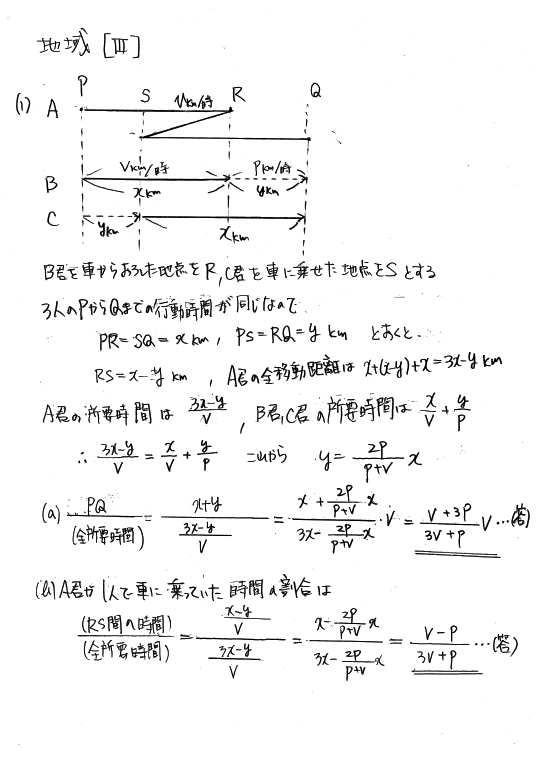 地域 [III]
(1) A P S R Q Vkm/時
B Vkm/時 xkm pkm/時 ykm
C ykm xkm
B君を車からおろした地点をR, C君を車に乗せた地点をSとする
3人のPからQまでの行動時間が同じなので
PR=SQ=x km, PS=RQ=y km とおくと.
RS=x-y km , A君の全移動距離は x+(x-y)+x=3x-y km
A君の所要時間は (3x-y)/V , B君,C君の所要時間は x/V + y/P
∴ (3x-y)/V = x/V + y/P これから y= 2P/(P+V) x
(a) PQ/(全所要時間) = (x+y)/((3x-y)/V) = (x + 2P/(P+V) x)/(3x - 2P/(P+V) x) ・V = (V+3P)/(3V+P) V …(答)
(b) A君が1人で車に乗っていた時間の割合は
(RS間の時間)/(全所要時間) = ((x-y)/V)/((3x-y)/V) = (x - 2P/(P+V) x)/(3x - 2P/(P+V) x) = (V-P)/(3V+P) …(答)